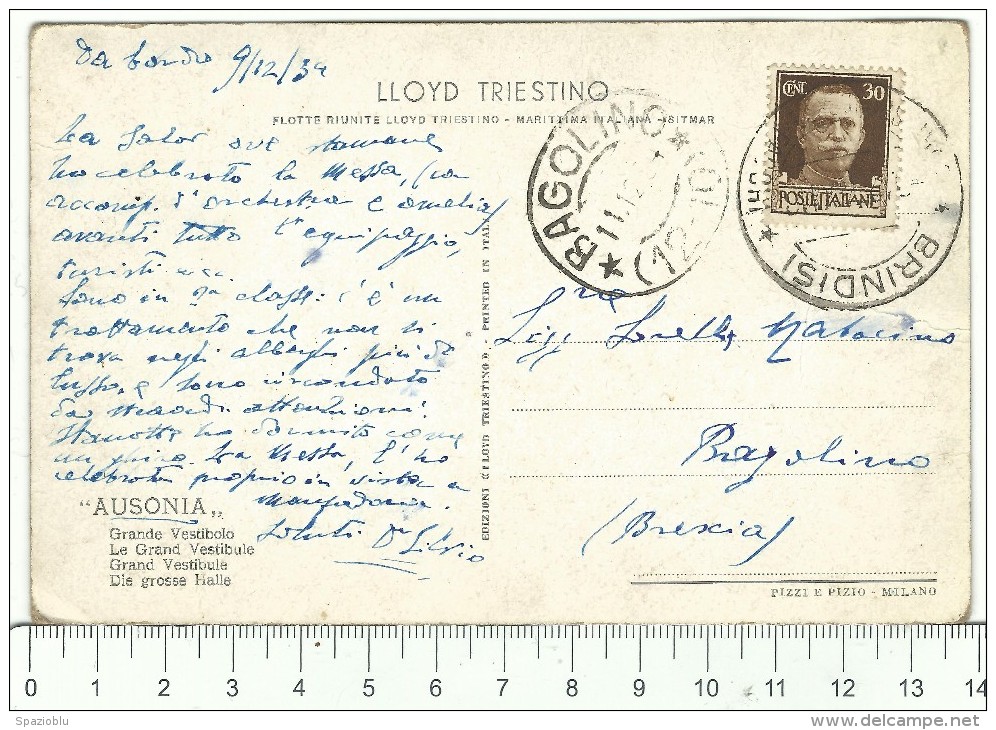 Da bordo 9/12/34
LLOYD TRIESTINO
FLOTTE RIUNITE LLOYD TRIESTINO - MARITTIMA ITALIANA - SITMAR
La ove stamane
ho celebrato la Messa, (con
accomp. d'orchestra e omelia)
avanti tutto l'equipaggio,
turisti ecc.
Sono in classe: c'è un
trattamento che non si
trova negli alberghi più di
lusso, e sono circondato
da attenzioni.
Stanotte ho dormito come
un La Messa, l'ho
celebrata proprio in vista a
Saluti D. Silvio
"AUSONIA„
Grande Vestibolo
Le Grand Vestibule
Grand Vestibule
Die grosse Halle
EDIZIONI «LLOYD TRIESTINO» - PRINTED IN ITALY
* BAGOLINO * (BRESCIA)
11.12.
CENT. 30
POSTE ITALIANE
* BRINDISI
Sorelle
Bagolino
(Brescia)
PIZZI E PIZIO - MILANO
0 1 2 3 4 5 6 7 8 9 10 11 12 13 14
Spazioblu
delcampe.net